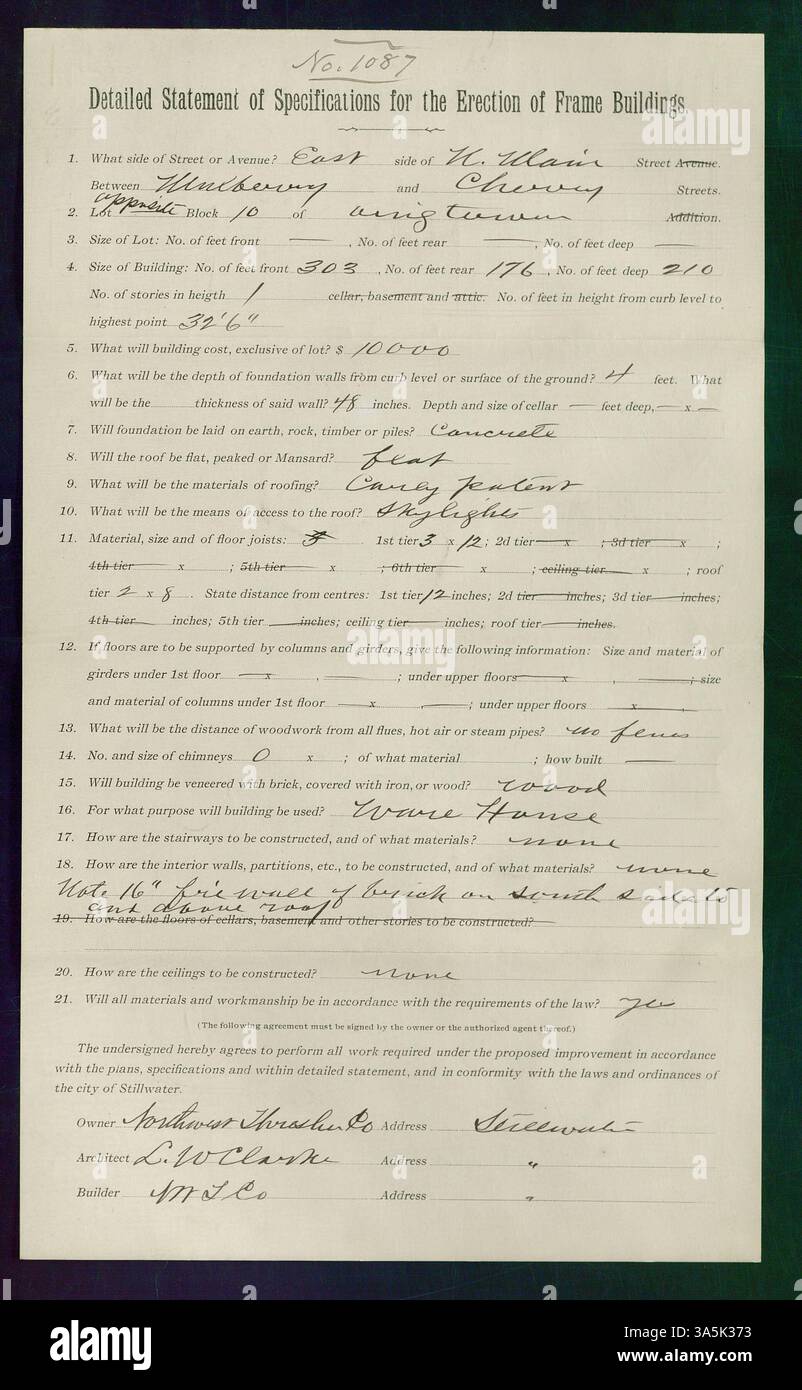 No. 1087
Detailed Statement of Specifications for the Erection of Frame Buildings.
1. What side of Street or Avenue? East side of N. Main Street Avenue.
Between Mulberry and Cherry Streets.
opposite
2. Lot Block 10 of Addition.
3. Size of Lot: No. of feet front — , No. of feet rear — , No. of feet deep —
4. Size of Building: No. of feet front 303 , No. of feet rear 176 , No. of feet deep 210
No. of stories in heigth 1 cellar, basement and attic. No. of feet in height from curb level to
highest point 32'6"
5. What will building cost, exclusive of lot? $ 10000
6. What will be the depth of foundation walls from curb level or surface of the ground? 4 feet. What
will be the thickness of said wall? 48 inches. Depth and size of cellar — feet deep, — x —
7. Will foundation be laid on earth, rock, timber or piles? Concrete
8. Will the roof be flat, peaked or Mansard? flat
9. What will be the materials of roofing? Carey patent
10. What will be the means of access to the roof? Skylights
11. Material, size and of floor joists: 1st tier 3 x 12 ; 2d tier x ; 3d tier x ;
4th tier x ; 5th tier x ; 6th tier x ; ceiling tier x ; roof
tier 2 x 8 . State distance from centres: 1st tier 12 inches; 2d tier inches; 3d tier inches;
4th tier inches; 5th tier inches; ceiling tier inches; roof tier inches.
12. If floors are to be supported by columns and girders, give the following information: Size and material of
girders under 1st floor x , ; under upper floors x , ; size
and material of columns under 1st floor x , ; under upper floors x ,
13. What will be the distance of woodwork from all flues, hot air or steam pipes? no flues
14. No. and size of chimneys 0 x ; of what material ; how built —
15. Will building be veneered with brick, covered with iron, or wood? wood
16. For what purpose will building be used? Ware House
17. How are the stairways to be constructed, and of what materials? none
18. How are the interior walls, partitions, etc., to be constructed, and of what materials? none
Note 16" fire wall of brick on south side to
and above roof
19. How are the floors of cellars, basement and other stories to be constructed?
20. How are the ceilings to be constructed? none
21. Will all materials and workmanship be in accordance with the requirements of the law? yes
(The following agreement must be signed by the owner or the authorized agent thereof.)
The undersigned hereby agrees to perform all work required under the proposed improvement in accordance
with the plans, specifications and within detailed statement, and in conformity with the laws and ordinances of
the city of Stillwater.
Owner Northwest Thresher Co Address Stillwater
Architect L. W Clarke Address "
Builder NW T Co Address "
alamy
alamy
alamy
Image ID: 3A5K373
www.alamy.com